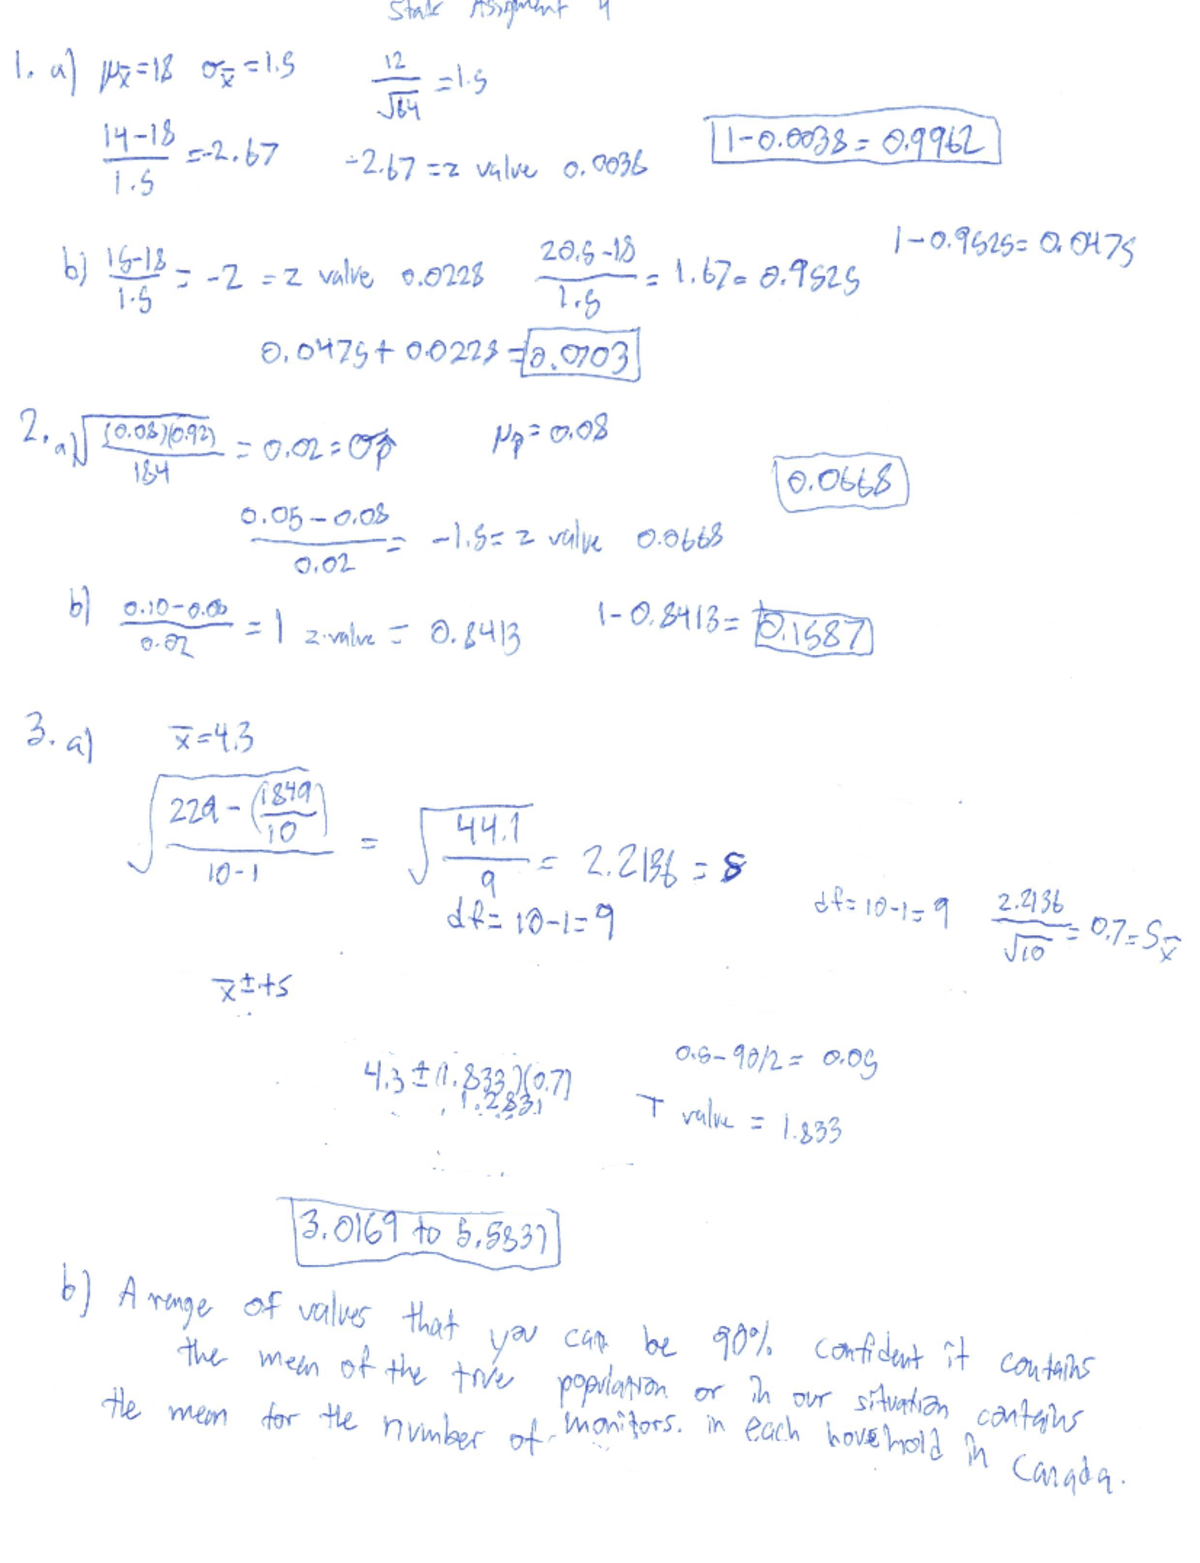 Stats Assignment 4
1. a) μx̄=18 σx̄=1.5 12/√64 =1.5
14-18/1.5 =-2.67 -2.67 = z value 0.0038 1-0.0038=0.9962
b) 15-18/1.5 = -2 = z value 0.0228 20.5-18/1.5 = 1.67= 0.9525 1-0.9525= 0.0475
0.0475+ 0.0228 =0.0703
2. a) √(0.08)(0.92)/184 = 0.02 = σp̂ μp̂=0.08
0.0668
0.05-0.08/0.02 = -1.5= z value 0.0668
b) 0.10-0.08/0.02 =1 z-value = 0.8413 1-0.8413= 0.1587
3. a) x̄=4.3
√229-(1849/10)/10-1 = √44.1/9 = 2.2136 = s
df= 10-1=9 df=10-1=9 2.2136/√10 = 0.7=Sx̄
x̄±ts
4.3±(1.833)(0.7) 0.5-90/2= 0.05
1.2831 T value = 1.833
3.0169 to 5.5831
b) A range of values that you can be 90% confident it contains
the mean of the true population or in our situation contains
the mean for the number of monitors. in each household in Canada.